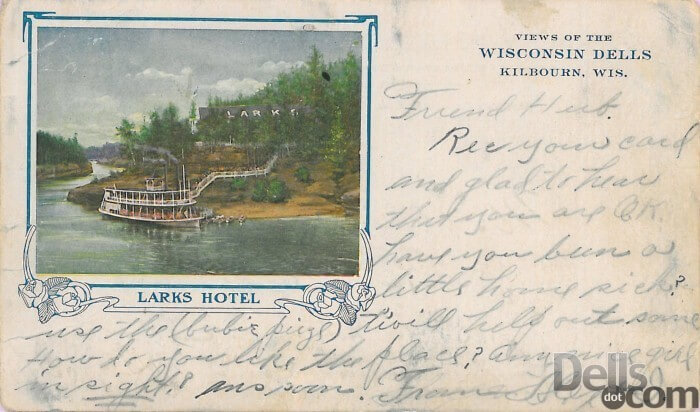 VIEWS OF THE
WISCONSIN DELLS
KILBOURN, WIS.
LARKS
LARKS HOTEL
Friend Hub.
Rec your card
and glad to hear
that you are O.K.
have you been a
little home sick?
use the (bubie t'will help out some
How do you like the place? any nice girls
in sight? ans soon.
Dells
dotcom